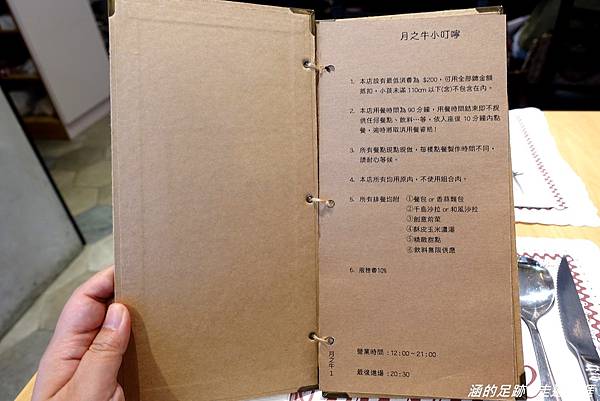 月之牛小叮嚀
1. 本店設有最低消費為 $200，可用全部總金額
抵扣，小孩未滿 110cm 以下(含)不包含在內。
2. 本店用餐時間為 90 分鐘，用餐時間結束即不提
供任何餐點、飲料…等，依人座後 10 分鐘內點
餐，逾時將取消用餐資格！
3. 所有餐點現點現做，每樣點餐製作時間不同，
請耐心等候。
4. 本店所有均用原肉，不使用組合肉。
5. 所有排餐均附 ①餐包 or 香蒜麵包
②千島沙拉 or 和風沙拉
③創意前菜
④酥皮玉米濃湯
⑤精緻甜點
⑥飲料無限供應
6. 服務費10%
營業時間：12:00~21:00
最後進場：20:30
月之牛 1
涵的足跡